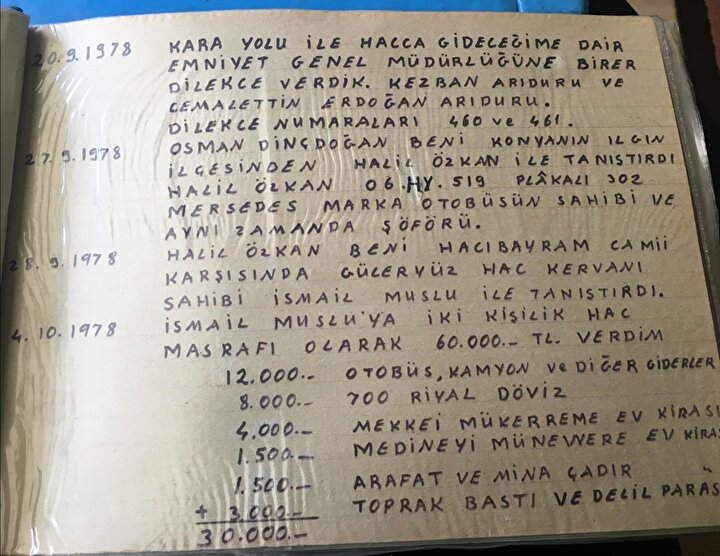 20.9.1978 KARA YOLU İLE HACCA GİDECEĞİME DAİR
EMNİYET GENEL MÜDÜRLÜĞÜNE BİRER
DİLEKCE VERDİK. KEZBAN ARIDURU VE
CEMALETTİN ERDOĞAN ARIDURU.
DİLEKCE NUMARALARI 460 ve 461.
27.9.1978 OSMAN DİNÇDOĞAN BENİ KONYANIN ILGIN
İLÇESİNDEN HALİL ÖZKAN İLE TANISTIRDI
HALİL ÖZKAN 06.HY.519 PLÂKALI 302
MERSEDES MARKA OTOBÜSÜN SAHİBİ VE
AYNI ZAMANDA ŞÖFÖRÜ.
28.9.1978 HALİL ÖZKAN BENİ HACIBAYRAM CAMİİ
KARŞISINDA GÜLERYÜZ HAC KERVANI
SAHİBİ İSMAİL MUSLU İLE TANIŞTIRDI.
4.10.1978 İSMAİL MUSLU'YA İKİ KİŞİLİK HAC
MASRAFI OLARAK 60.000.- TL. VERDİM
12.000.- OTOBÜS, KAMYON ve DİĞER GİDERLER
8.000.- 700 RİYAL DÖVİZ
4.000.- MEKKEİ MÜKERREME EV KİRASI
1.500.- MEDİNEYİ MÜNEVVERE EV KİRAS
1.500.- ARAFAT VE MİNA ÇADIR
+ 3.000.- TOPRAK BASTI VE DELİL PARAS
30.000.-